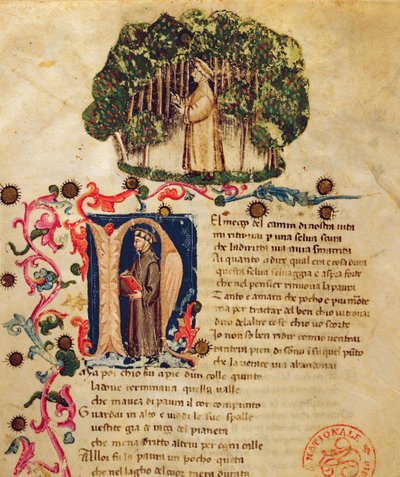 N
El meço del camin di nostra uita
mi ritrouai p una selua scura
che la diritta uia era smarrita
Ai quanto a dire qual era e cosa dura
questa selua seluaggia e aspa forte
che nel pensier rinuoua la paura
Tanto e amara che pocho e piu morte
ma per tractar del ben chiui trouai
diro delaltre cose chio uo scorte
Io non so ben ridir comio ventrai
tantera pien di sono i su quel
che la verace uia abandonai
Ma poi chio fui apie dun colle giunto
la doue terminaua quella ualle
che mauea di paura il cor compunto
Guardai in alto e uidi le sue spalle
vestite gia de raggi del pianeta
che mena dritto altrui per ogni calle
Allor fu la paura un pocho queta
che nel lagho del cuor mera durata
NATIONALE